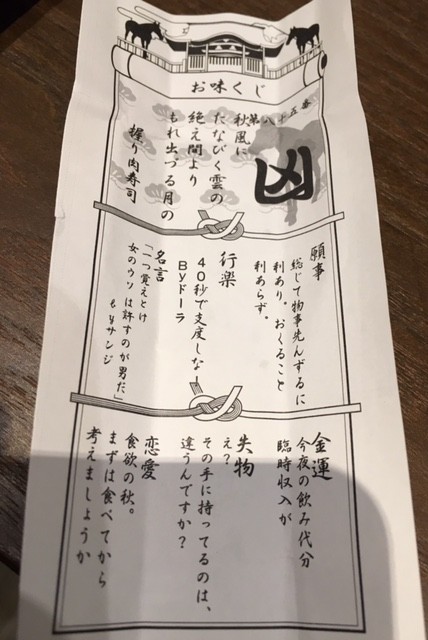 お味くじ
第八十五番
凶
秋風に
たなびく雲の
絶え間より
もれ出づる月の
握り肉寿司
願事
総じて物事先んずるに
利あり。おくるること
利あらず。
行楽
40秒で支度しな!
Byドーラ
名言
「一つ覚えとけ
女のウソは許すのが男だ」
byサンジ
金運
今夜の飲み代分
臨時収入が
失物
え?
その手に持ってるのは、
違うんですか?
恋愛
食欲の秋。
まずは食べてから
考えましょうか